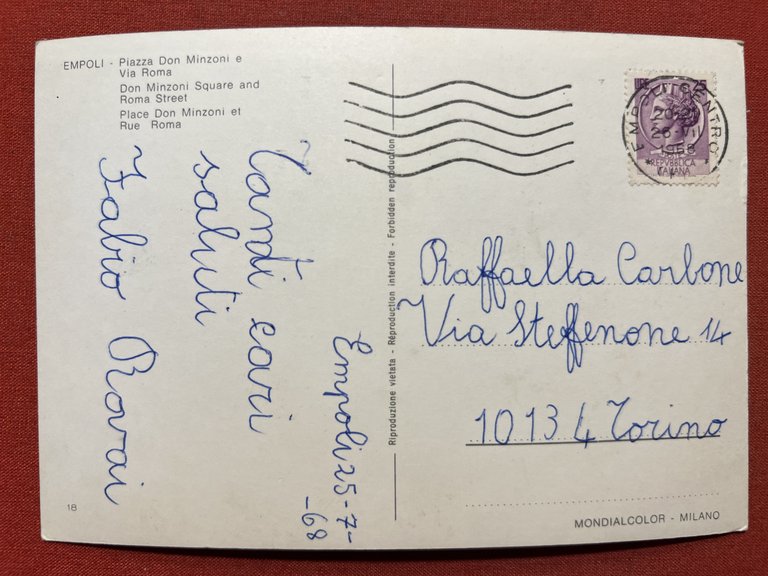 EMPOLI - Piazza Don Minzoni e
Via Roma
Don Minzoni Square and
Roma Street
Place Don Minzoni et
Rue Roma
Tanti cari
saluti
Fabio Rovai
Empoli 25-7-
-68
18
Riproduzione vietata - Réproduction interdite - Forbidden reproduction
LIRE 25
EMPOLI CENTRO
26 VII
1968
REPVBBLICA
ITALIANA
Raffaella Carbone
Via Steffenone 14
10134 Torino
MONDIALCOLOR - MILANO